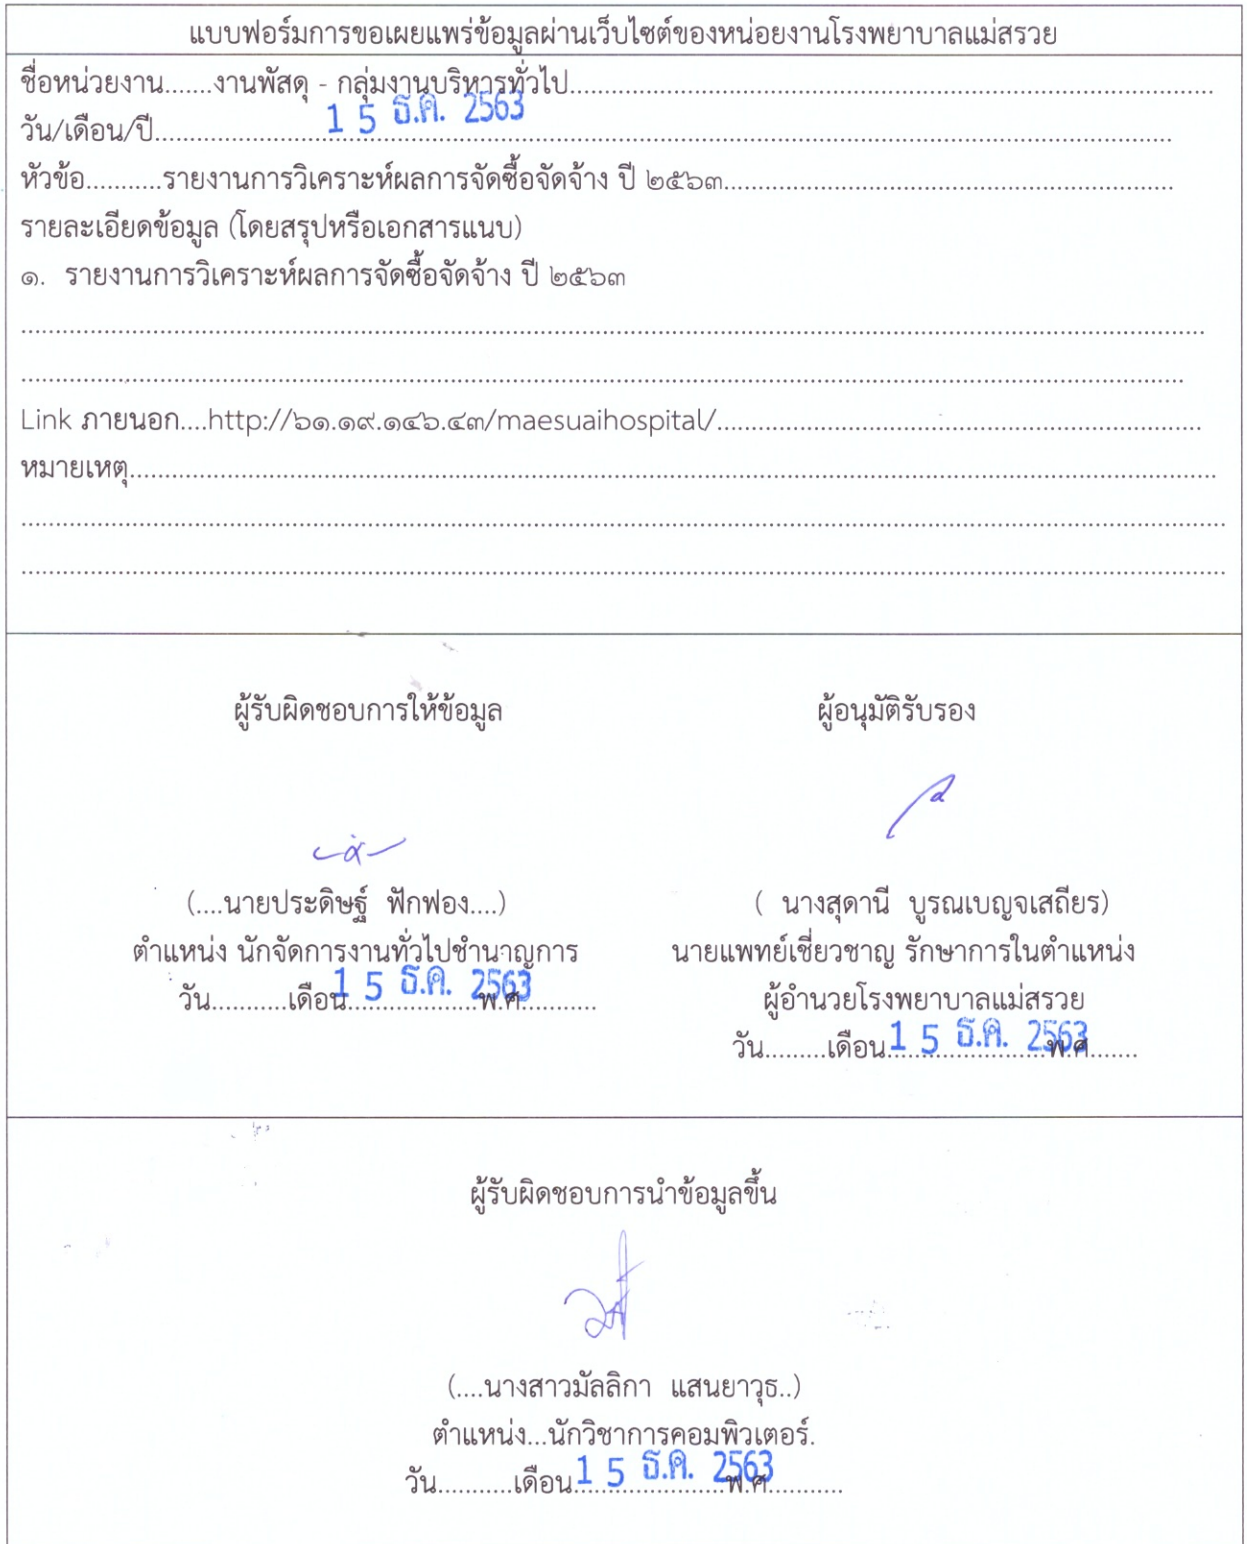 แบบฟอร์มการขอเผยแพร่ข้อมูลผ่านเว็บไซต์ของหน่อยงานโรงพยาบาลแม่สรวย
ชื่อหน่วยงาน.......งานพัสดุ - กลุ่มงานบริหารทั่วไป
วัน/เดือน/ปี 1 5 ธ.ค. 2563
หัวข้อ...........รายงานการวิเคราะห์ผลการจัดซื้อจัดจ้าง ปี ๒๕๖๓
รายละเอียดข้อมูล (โดยสรุปหรือเอกสารแนบ)
๑. รายงานการวิเคราะห์ผลการจัดซื้อจัดจ้าง ปี ๒๕๖๓
Link ภายนอก....http://๖๑.๑๙.๑๔๖.๔๓/maesuaihospital/
หมายเหตุ
ผู้รับผิดชอบการให้ข้อมูล
(....นายประดิษฐ์ ฟักฟอง....)
ตำแหน่ง นักจัดการงานทั่วไปชำนาญการ
วัน...........เดือน 1 5 ธ.ค. 2563 พ.ศ...........
ผู้อนุมัติรับรอง
( นางสุดานี บูรณเบญจเสถียร)
นายแพทย์เชี่ยวชาญ รักษาการในตำแหน่ง
ผู้อำนวยโรงพยาบาลแม่สรวย
วัน.........เดือน 1 5 ธ.ค. 2563 พ.ศ.......
ผู้รับผิดชอบการนำข้อมูลขึ้น
(....นางสาวมัลลิกา แสนยาวุธ..)
ตำแหน่ง...นักวิชาการคอมพิวเตอร์.
วัน...........เดือน 1 5 ธ.ค. 2563 พ.ศ...........